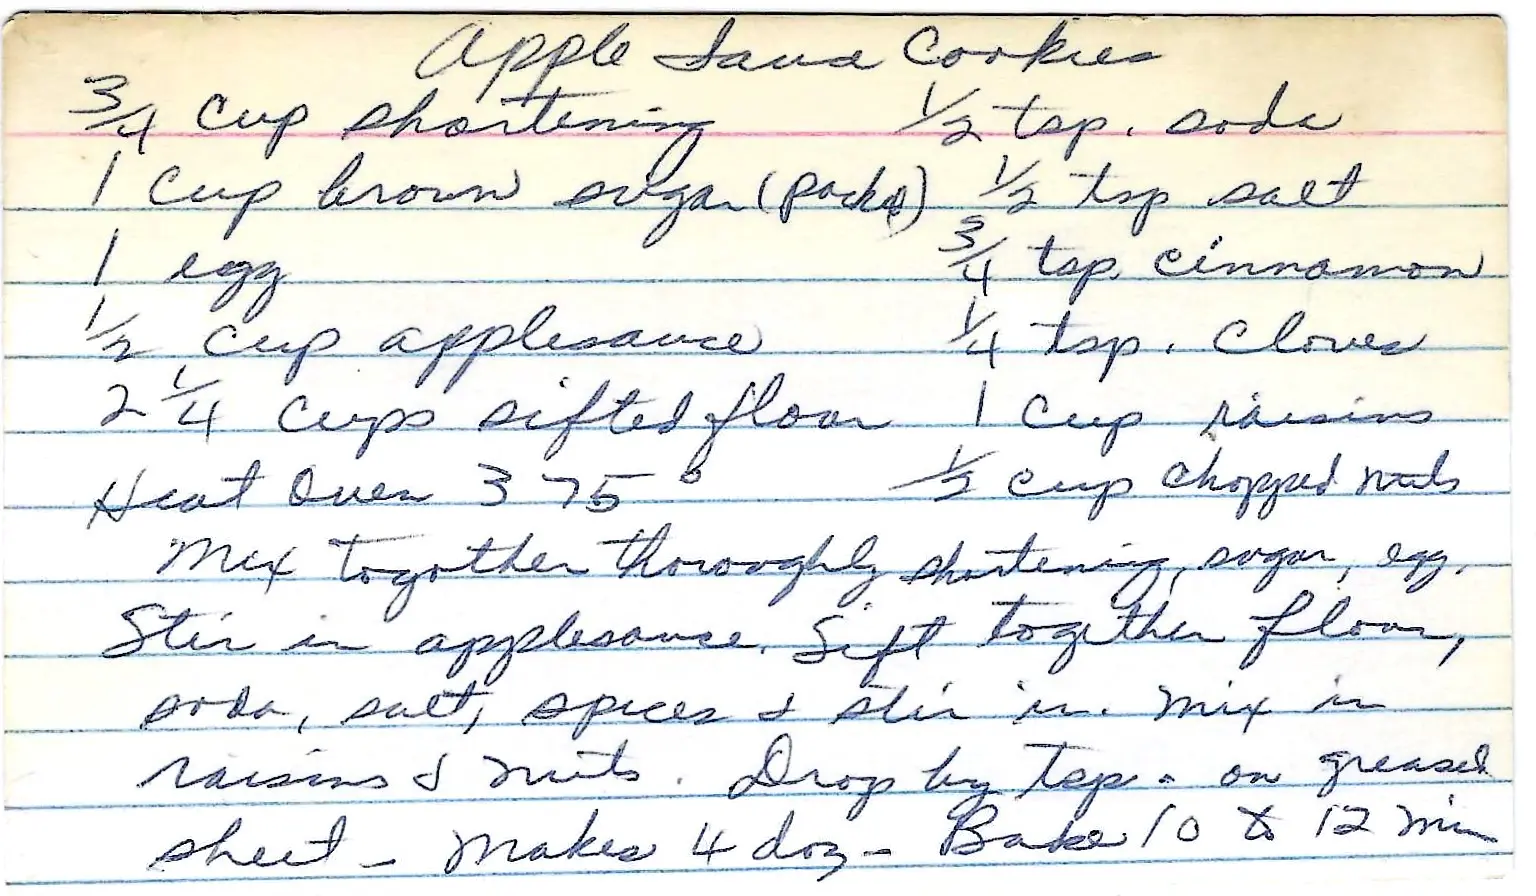 Apple Sauce Cookies
3/4 cup shortening 1/2 tsp. soda
1 cup brown sugar (packed) 1/2 tsp salt
1 egg 3/4 tsp cinnamon
1/2 cup applesauce 1/4 tsp. cloves
2 1/4 cups sifted flour 1 cup raisins
Heat Oven 375° 1/2 cup chopped nuts
Mix together thoroughly shortening, sugar, egg.
Stir in applesauce. Sift together flour,
soda, salt, spices & stir in. Mix in
raisins & nuts. Drop by tsp. on greased
sheet - Makes 4 doz - Bake 10 to 12 min